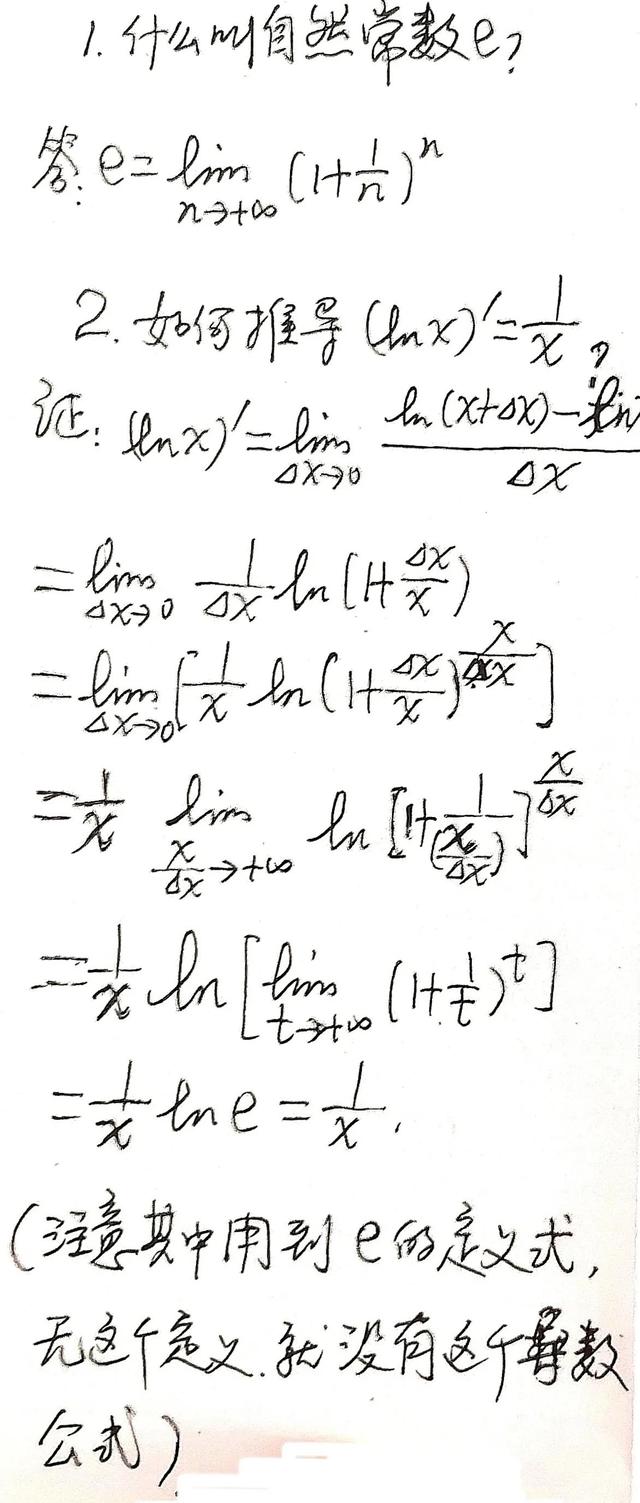 1. 什么叫自然常数e?
答: e=lim_{n→+∞} (1+1/n)^n
2. 如何推导 (lnx)′=1/x?
证: (lnx)′=lim_{Δx→0} (ln(x+Δx)-ln)/Δx
=lim_{Δx→0} 1/Δx ln(1+Δx/x)
=lim_{Δx→0}[1/x ln(1+Δx/x)^{x/Δx}]
=1/x lim_{x/Δx→+∞} ln[1+1/(x/Δx)]^{x/Δx}
=1/x ln[lim_{t→+∞} (1+1/t)^t]
=1/x lne=1/x.
(注意其中用到e的定义式,
无这个定义.就没有这个导数
公式)